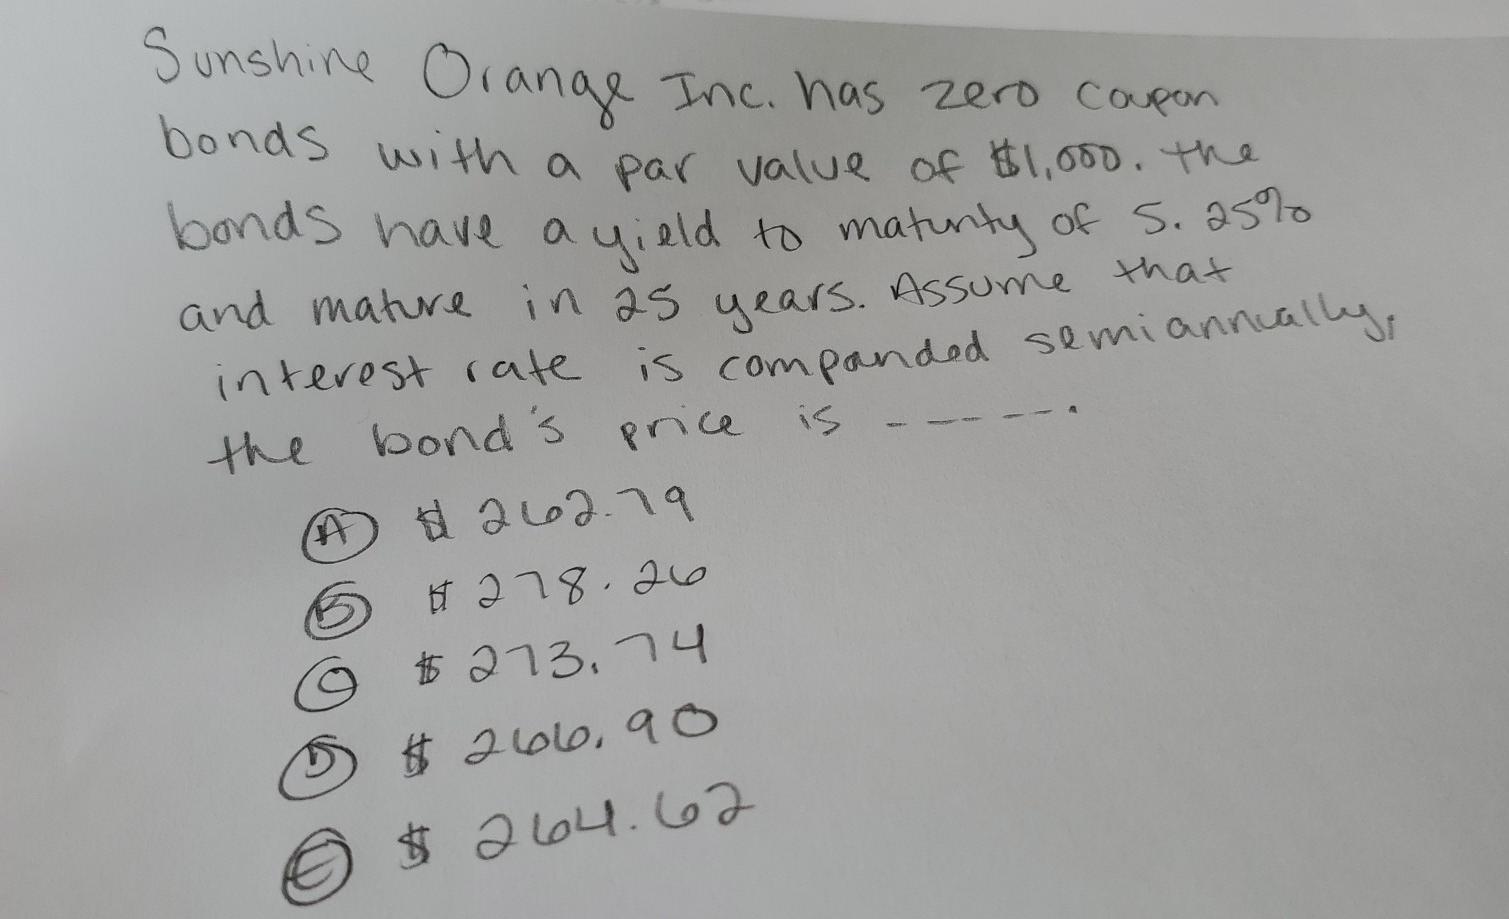 Sunshine Orange Inc. has zero coupon
bonds with a par value of $1,000. the
bonds have a yield to maturity of 5.25%
and mature in 25 years. Assume that
interest rate is companded semiannually,
the bond's price is -----.
A $262.79
B $278.26
C $273.74
D $266.90
E $264.62